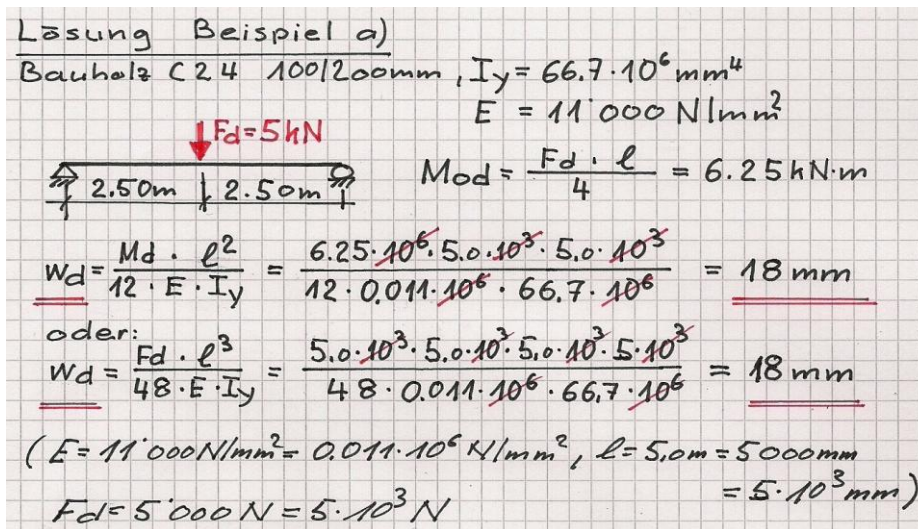 Lösung Beispiel a)
Bauholz C24 100/200mm, Iy = 66.7·10⁶ mm⁴
E = 11'000 N/mm²
Fd = 5kN
2.50m 2.50m
Mod = Fd · ℓ / 4 = 6.25 kN·m
wd = Md · ℓ² / 12 · E · Iy = 6.25·10⁶· 5.0·10³· 5.0·10³ / 12 · 0.011·10⁶ · 66.7·10⁶ = 18 mm
oder:
wd = Fd · ℓ³ / 48 · E · Iy = 5.0·10³· 5.0·10³· 5.0·10³· 5·10³ / 48 · 0.011·10⁶ · 66.7·10⁶ = 18 mm
(E = 11'000 N/mm² = 0.011·10⁶ N/mm², ℓ = 5.0m = 5000mm
= 5·10³ mm)
Fd = 5'000 N = 5·10³ N